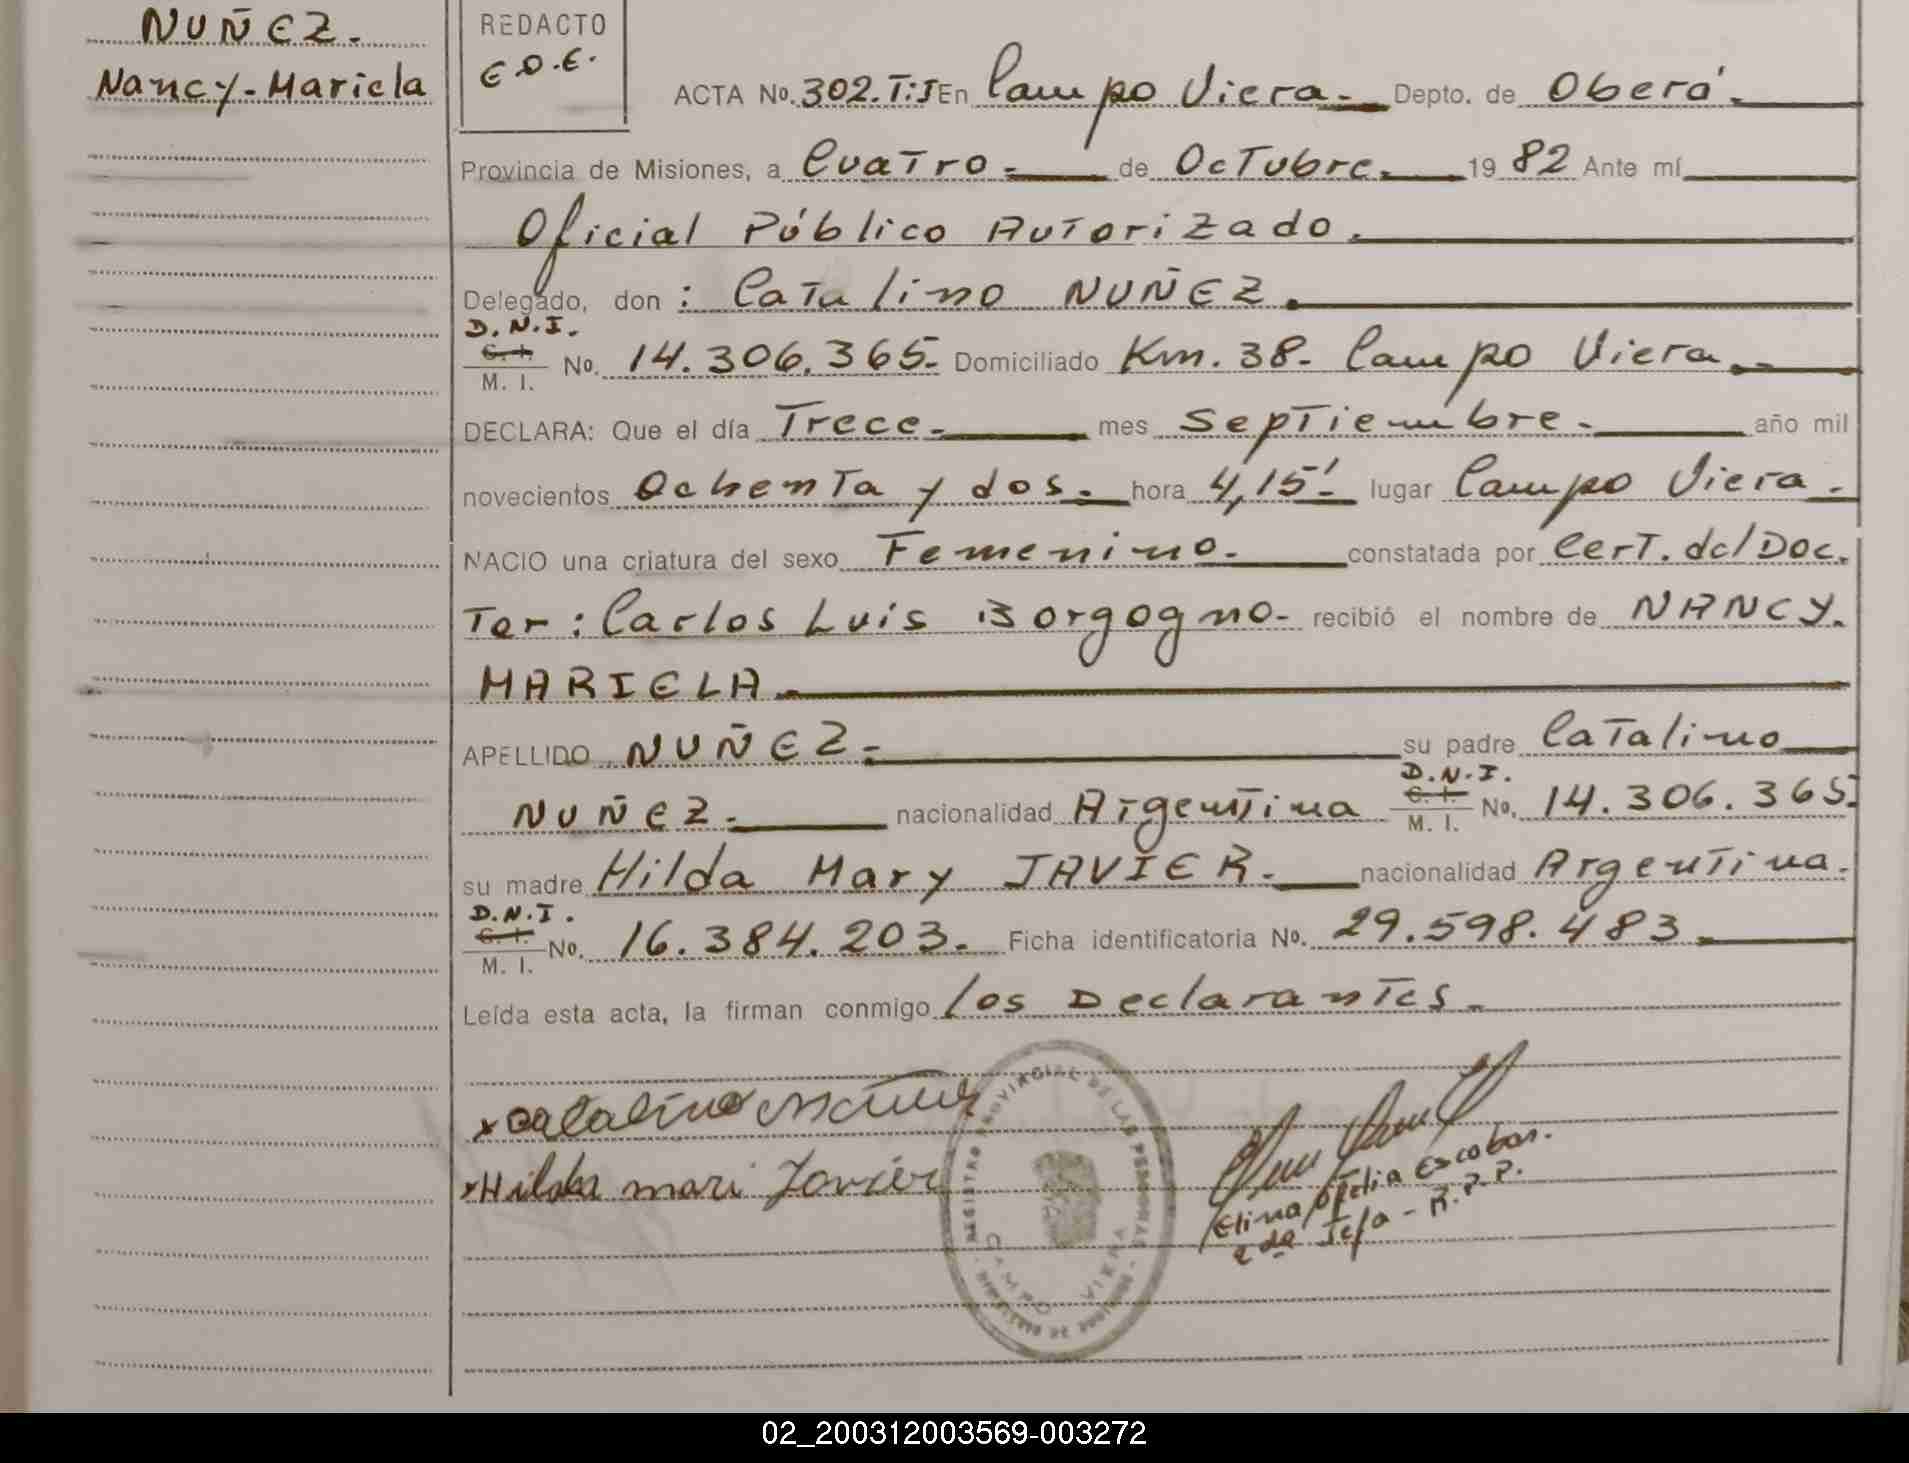 NUÑEZ.
Nancy-Mariela
REDACTO
E.O.E.
ACTA No. 302.T:I En Campo Viera.- Depto. de Oberá.
Provincia de Misiones, a Cuatro.- de Octubre. 1982 Ante mí
Oficial Público Autorizado.
Delegado, don: Catalino NUÑEZ.
D.N.I.
C. I. M. I. No. 14.306.365.- Domiciliado Km. 38.- Campo Viera.-
DECLARA: Que el día Trece.- mes Septiembre.- año mil
novecientos Ochenta y dos.- hora 4,15'.- lugar Campo Viera.-
NACIO una criatura del sexo Femenino.- constatada por Cert. del Doc.
Tor: Carlos Luis Borgogno.- recibió el nombre de NANCY.
MARIELA.-
APELLIDO NUÑEZ.- su padre Catalino
NUÑEZ.- nacionalidad Argentina D.N.I. C. I. M. I. No. 14.306.365.-
su madre Hilda Mary JAVIER.- nacionalidad Argentina.-
D.N.I.
C. I. M. I. No. 16.384.203.- Ficha identificatoria No. 29.598.483.-
Leída esta acta, la firman conmigo los Declarantes.-
x Catalino Nuñez
x Hilda mari Javier
REGISTRO PROVINCIAL DE LAS PERSONAS
CAMPO VIERA
Elina Ofelia Escobar.
2da Jefa - R.P.P.
02_200312003569-003272